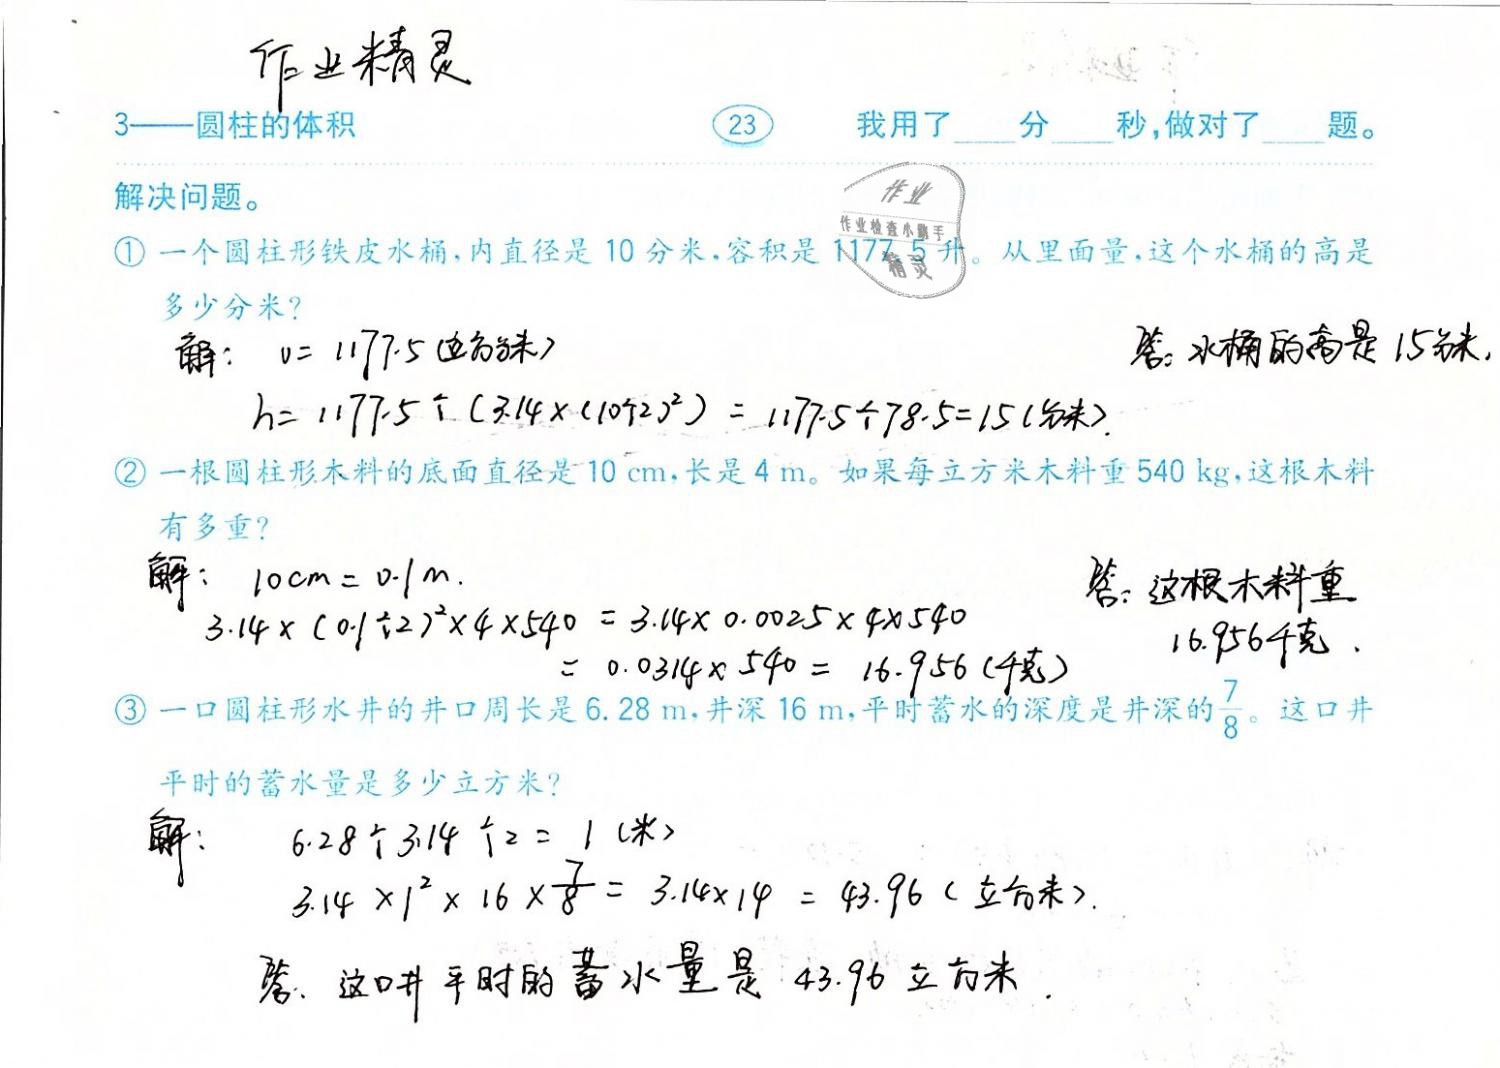 作业精灵
3——圆柱的体积 23 我用了____分____秒,做对了____题。
解决问题。
作业
作业检查小帮手
精灵
① 一个圆柱形铁皮水桶,内直径是 10 分米,容积是 1177.5 升。从里面量,这个水桶的高是
多少分米?
解: v= 1177.5 (立方分米)
答: 水桶的高是 15分米.
h= 1177.5÷(3.14×(10÷2)²) = 1177.5÷78.5=15(分米).
② 一根圆柱形木料的底面直径是 10 cm,长是 4 m。如果每立方米木料重 540 kg,这根木料
有多重?
解: 10cm = 0.1m.
答: 这根木料重
3.14×(0.1÷2)²×4×540 = 3.14×0.0025×4×540
16.956千克.
= 0.0314×540 = 16.956 (千克)
③ 一口圆柱形水井的井口周长是 6.28 m,井深 16 m,平时蓄水的深度是井深的 7/8。这口井
平时的蓄水量是多少立方米?
解: 6.28÷3.14÷2 = 1 (米)
3.14×1²×16×7/8 = 3.14×14 = 43.96 (立方米).
答. 这口井平时的蓄水量是 43.96 立方米.